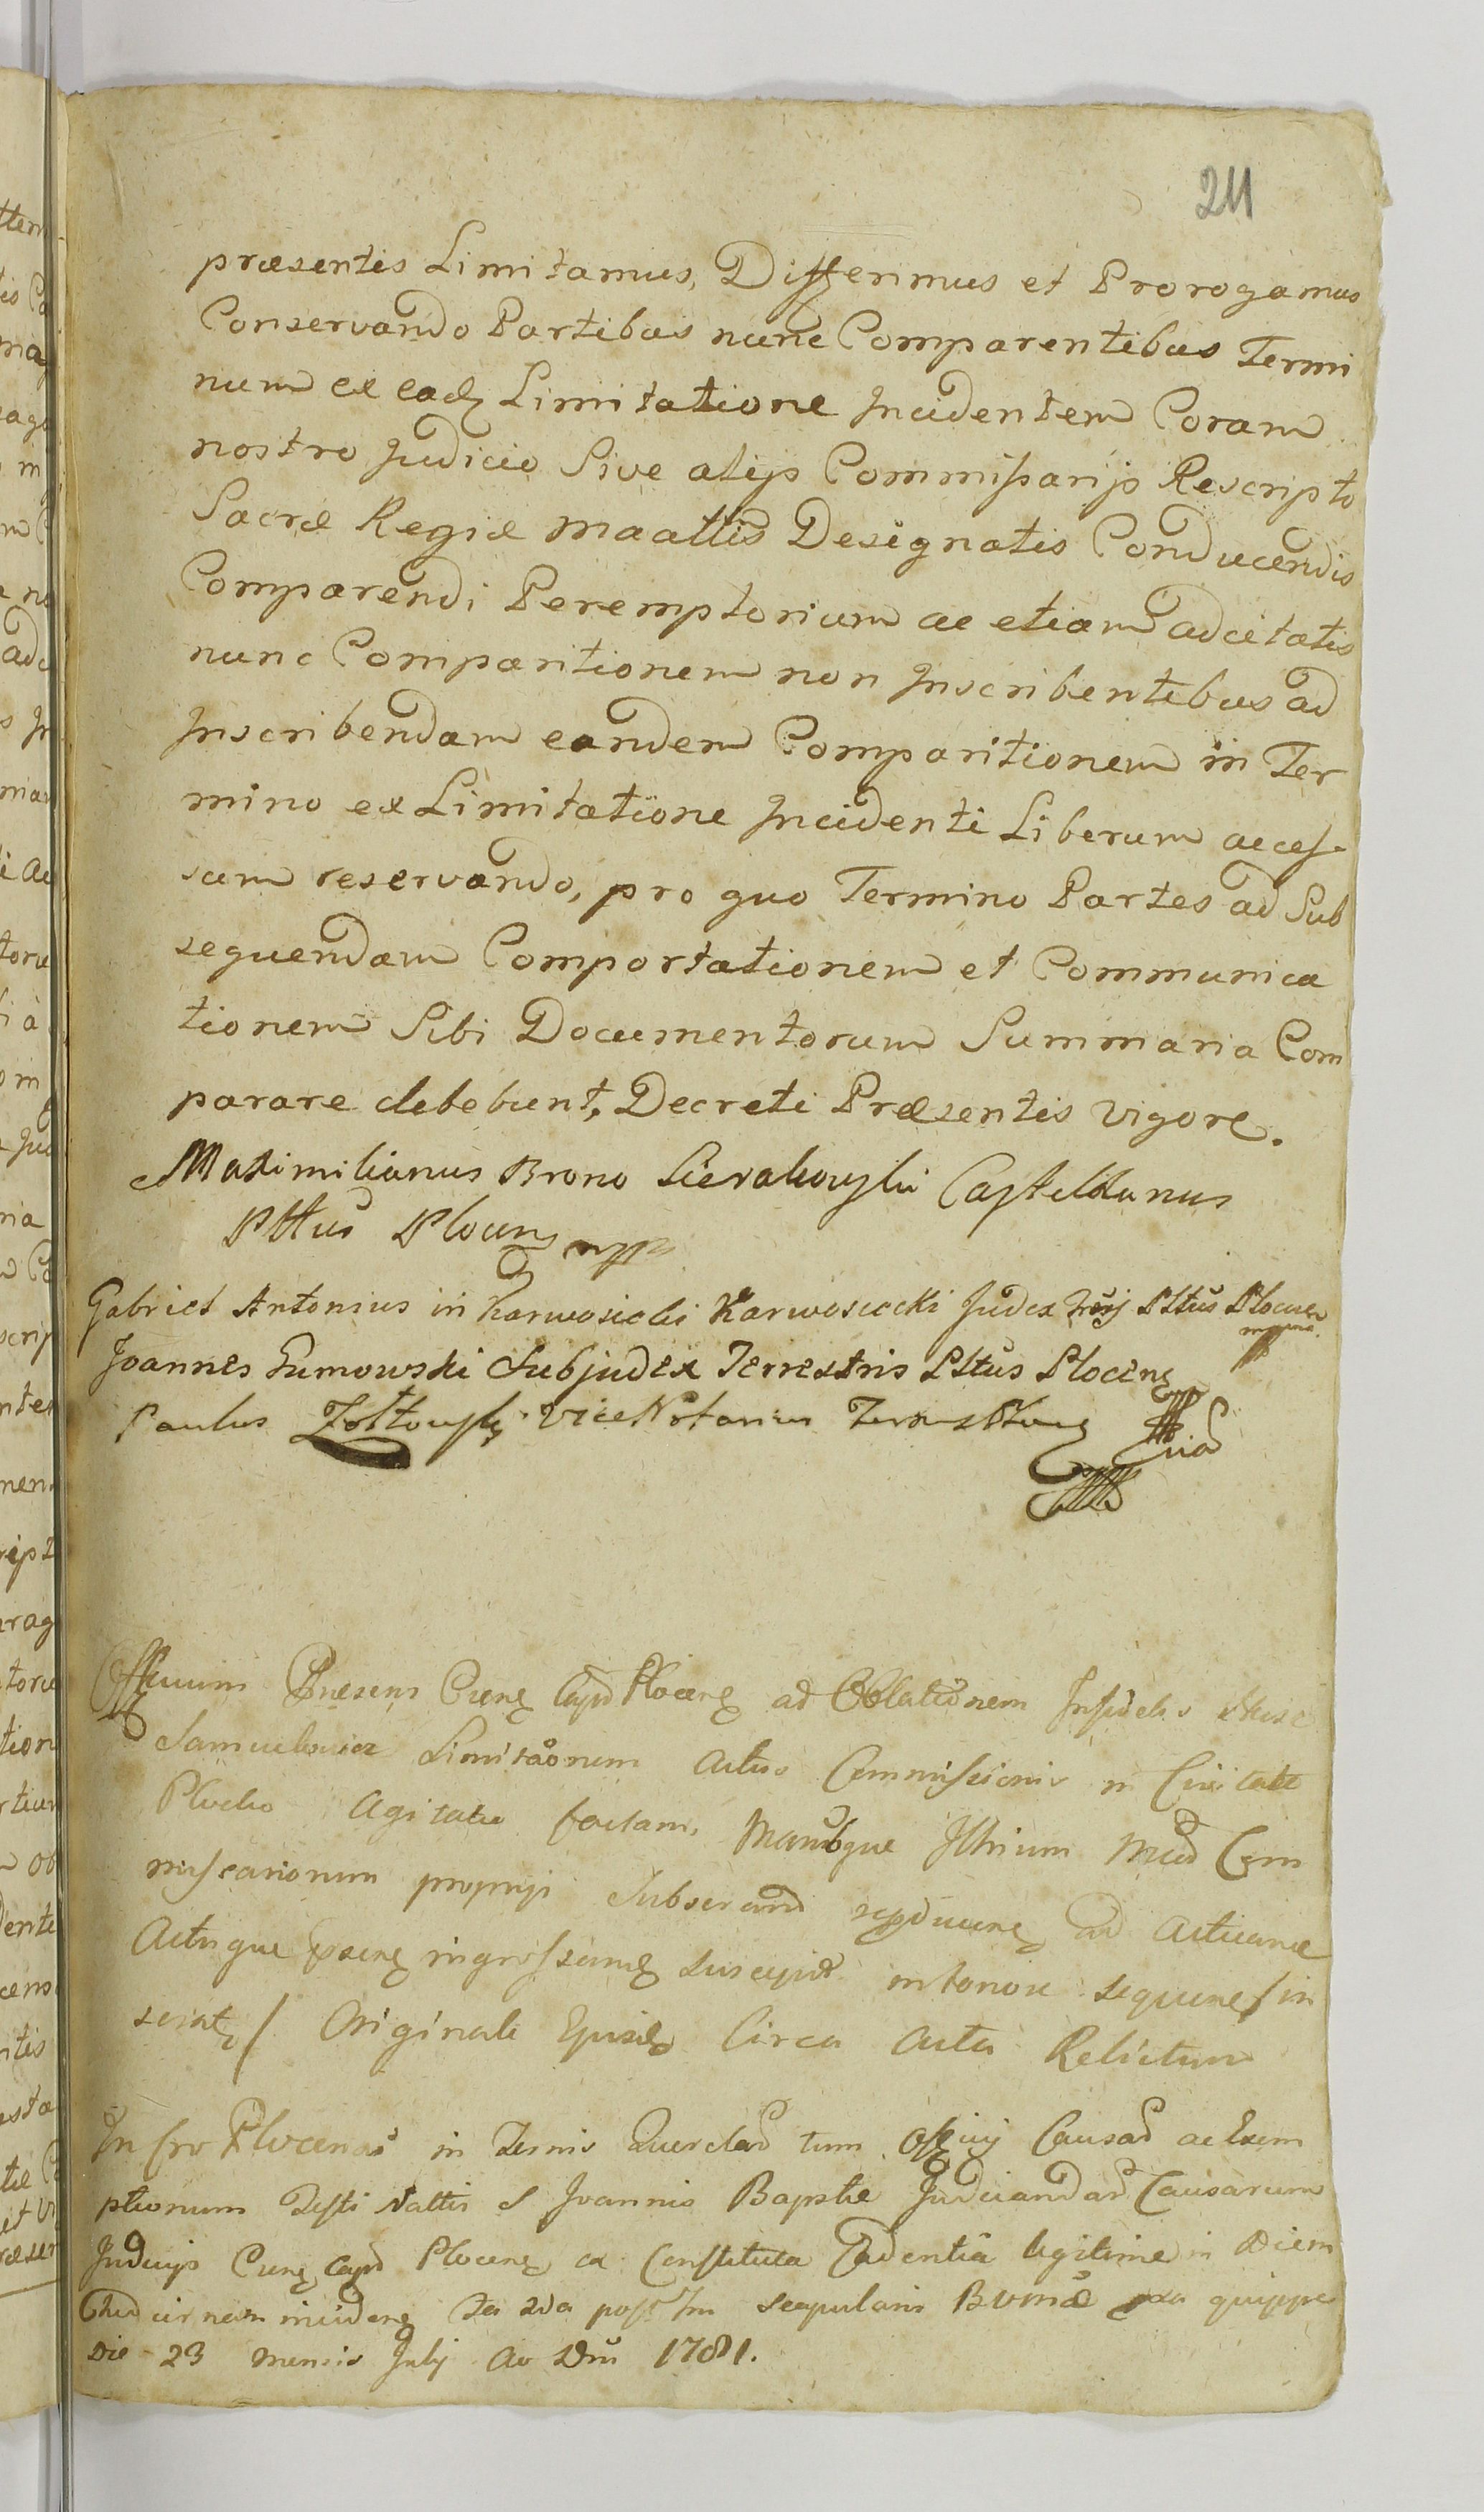 211
præsentis Limitamus, Differimus et Prorogamus
Conservando Partibus nunc Comparentibus Termi
num ex eadq Limitatione Incidentem Coram
nostro Judicio Sive alijs Commissarijs Rescripto
Sacræ Regiæ Maattis Designatis Conducendis
Comparendi Peremptorium ac etiam adcitatis
nunc Comparitionem non Inscribentibus ad
Inscribendam eandem Comparitionem in Ter
mino ex Limitatione Incidenti Liberum acces-
sum reservando, pro quo Termino Partes ad Sub
sequendam Comportationem et Communica
tionem Sibi Documentorum Summaria Com
parare debebunt, Decreti Præsentis vigore.
Maximilianus Brono Sierakowski Castellanus
Plttus Plocen mpp
Gabriel Antonius in Karwosieki Karwosiecki Judex Trrij Plttus Plocen
mppria
Joannes Gumowski Subjudex Terrestris Plttus Plocen
Paulus Zołtowski ViceNotarius
Officium Præsens Cap Plocen ad Oblationem Infidelis
Samuelowicz Limitaonem Actus Commissionis in Civitate
Plocko Agitatæ factam, Manibque Illrium Mcd Com
missariorum proprijs Subscr ad Acticand
Actisque ingrossand suscepit in tenore sequen / in
serat / Originali Circa Acta Relictum
In Cro Plocensi in Termis Querelar tum Offcij Causar ac Exem
ptionum Festi Nattis S Joannis Baptæ Judicandar Causarum
Judicijs Cap Plocen ex Constituta Cadentia legitime in Diem
Hodiernam inciden Fer 2da post Fm Scapularis quippe
Die 23 Mensis Julij Ao Dni 1781.